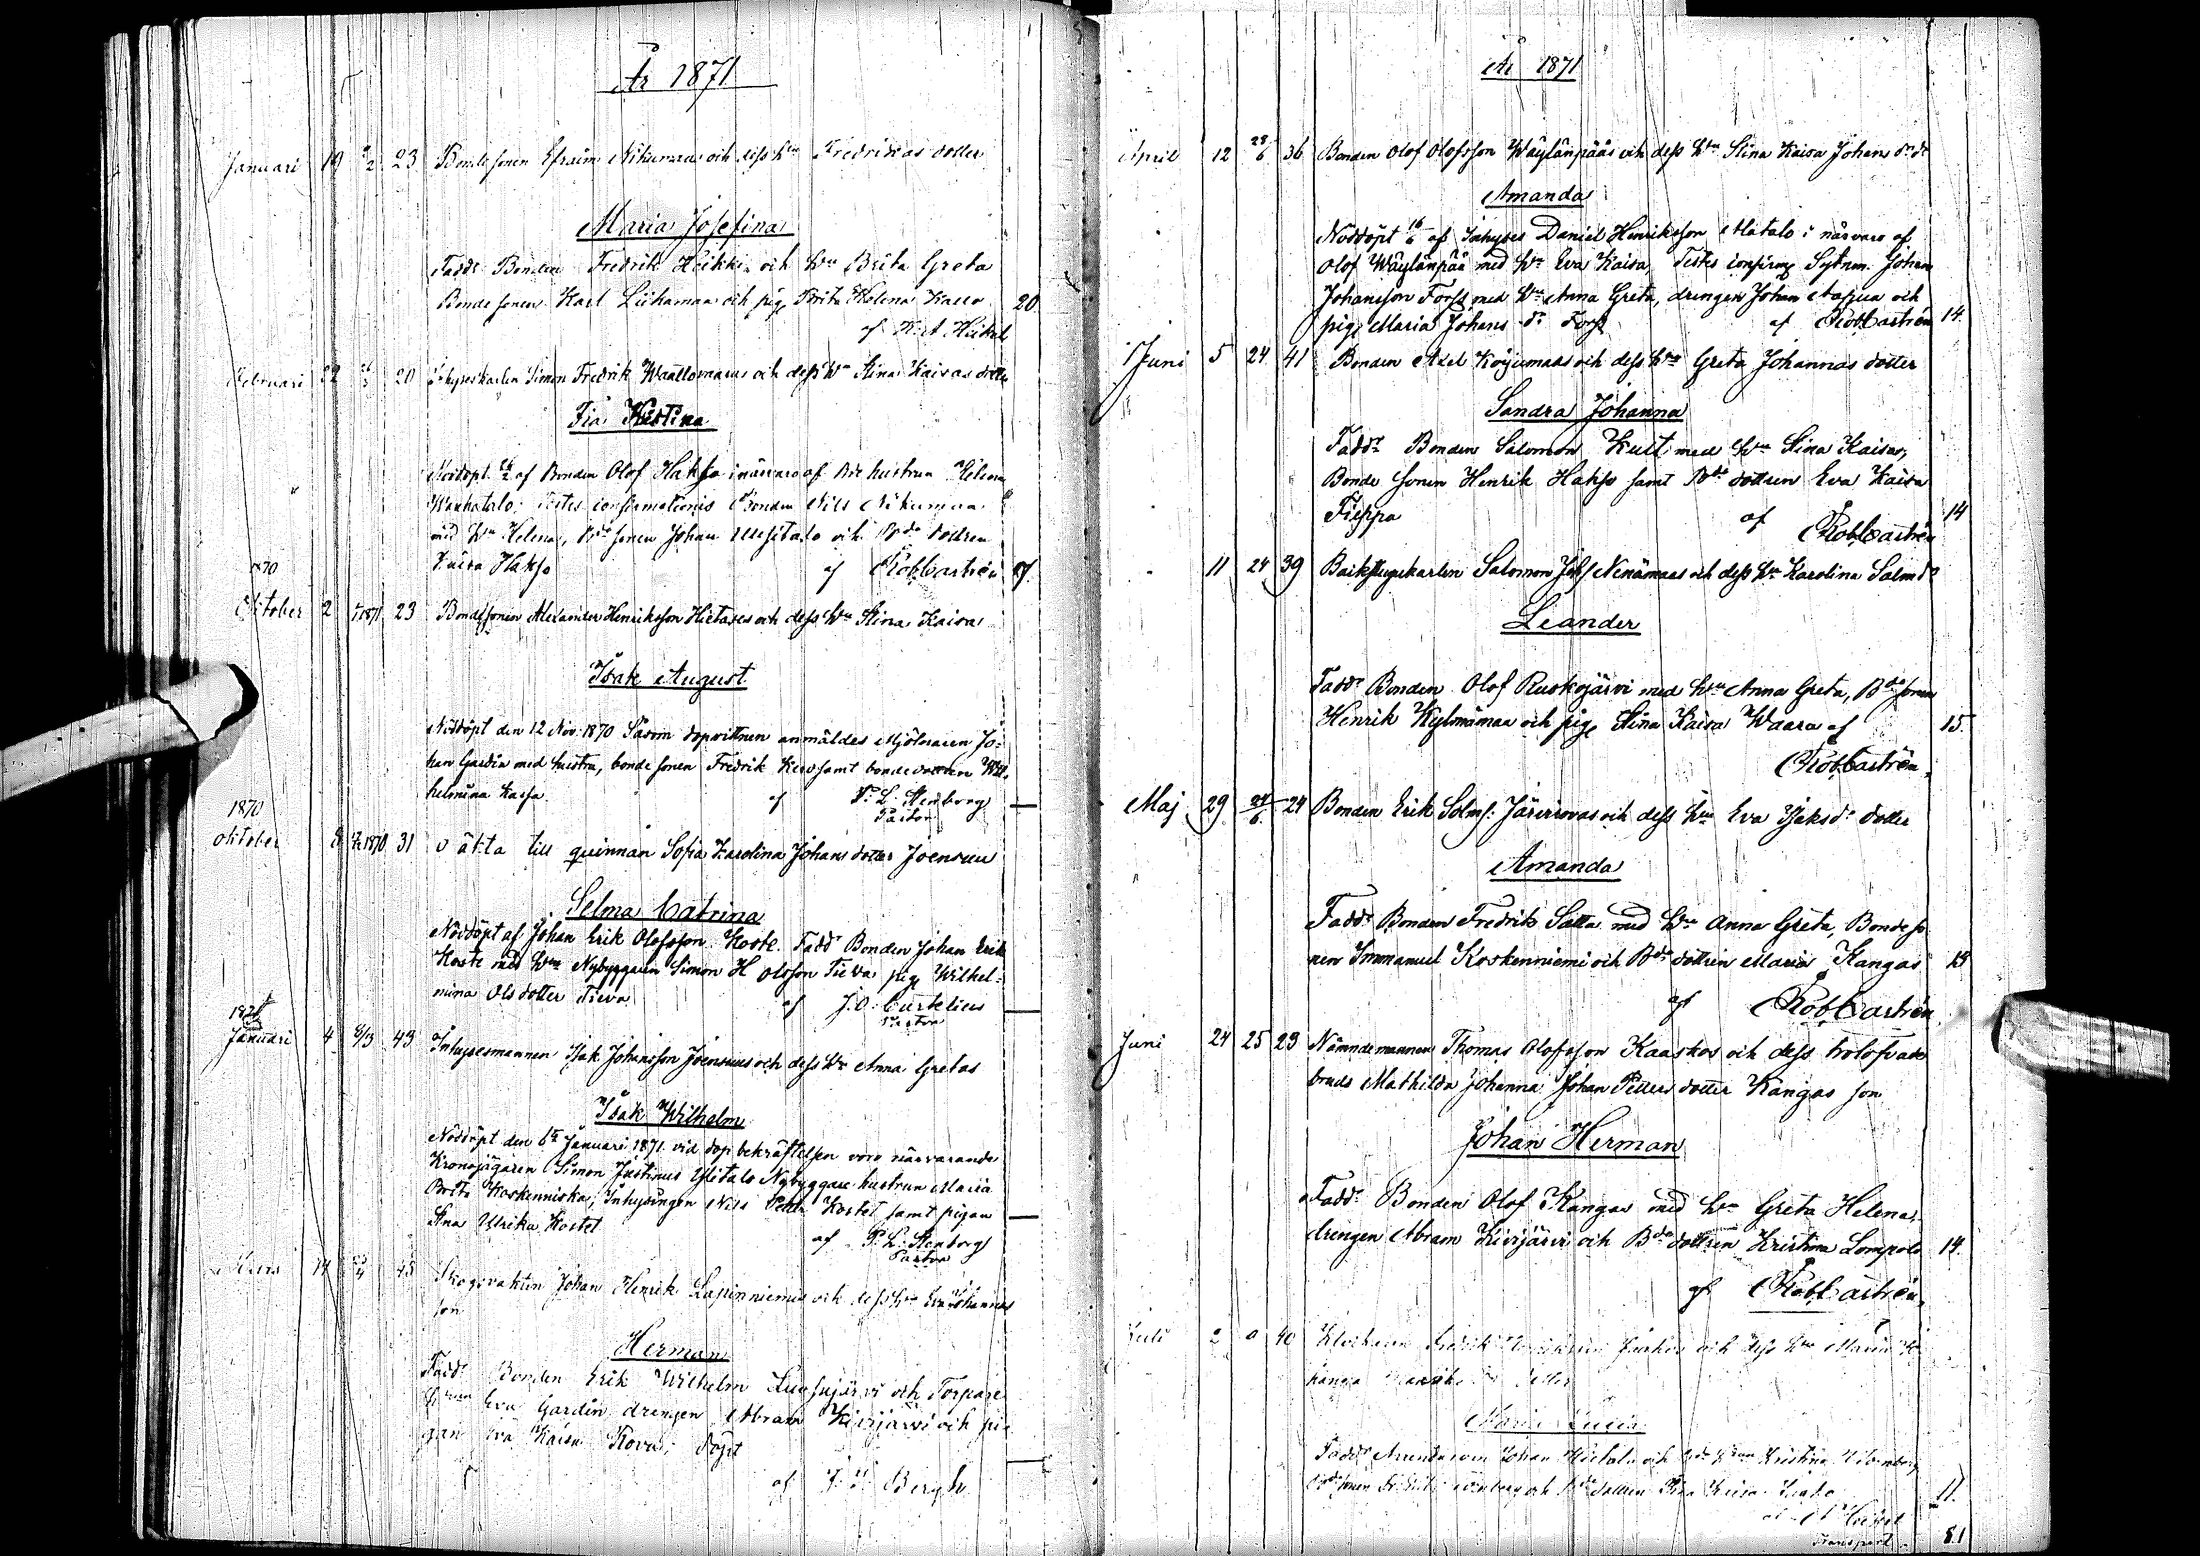 År 1871
Januari 19 2 23 Bonde sonen Efraim Nikumaas och dess hu Fredrikas dotter
Maria Josefina
Fadd: Bonden Fredrik Heikki och hu Brita Greta
Bonde sonen Karl Liikamaa och pig. Brita Helena Kallo 20.
af K. A. Heikel
Februari 22 20 Inhyseskarlen Simon Fredrik Waaltomaas och dess hu Stina Kaisas dotter
Fia Kristina
Nöddöpt af Bonden Olof Hakso i närvaro af Bde hustrun Helena
Wanhatalo. Testes confirmationis Bonden Nils Nikumaa
med hu Helena, Bde sonen Johan Uusitalo och Bde dottren
Kaisa Hakso af Rob Castrén 17.
1870
Oktober 2 1871 23 Bondesonen Alexander Henriksson Hietases och dess hu Stina Kaisa
Isak August
Nöddöpt den 12 Nov. 1870 Såsom dopvittnen anmäldes Mjölnaren Jo-
han Gardin med hustru, bonde sonen Fredrik Kero samt bonde dottren Wil-
helmina Kassa. af P. L. Stenborg
Pastor
1870
Oktober 8 1870 31 o äkta till qvinnan Sofia Karolina Johans dotter Joensuu
Selma Catrina
Nöddöpt af Johan Erik Olofsson Koste. Fadd: Bonden Johan Erik
Koste med hu Nybyggaren Simon H Olsson Tieva pig. Wilhel-
mina Ols dotter Tieva af J. O. Curtelius
Pastor
1871
Januari 4 8/3 43 Inhysesmannen Isak Johansson Joensuus och dess hu Anna Gretas
Isak Wilhelm
Nöddöpt den 6te Januari 1871. vid dop bekräftelsen voro närvarande
Kronojägaren Simon Justinus Ylitalo Nybyggare hustrun Maria
Brita Koskenniska, Inhysingen Nils Petter Kostet samt pigan
Stina Ulrika Kostet
af P. L. Stenborg
Pastor
Mars 14 4 45 Skogvakten Johan Henrik Lapinniemis och dess hu Eva Johannas
son
Herman
Fadd: Bonden Erik Wilhelm Luosujärvi och Torpare
Eva Gardin drengen Abram Kivijärvi och pi-
gan Eva Kaisa Rova; döpt
af Bergh
År 1871
April 12 28/6 36 Bonden Olof Olofsson Wäylänpääs och dess hu Stina Kaisa Johans dr dr
Amanda
Nöddöpt 16/6 af Inhyses Daniel Henriksson Matalo i närvaro af
Olof Wäylänpää med hu Eva Kaisa, Testes confirmq Sytnm. Johan
Johansson Forss med hu Anna Greta, drengen Johan Aapua och
pig. Maria Johans dr Forss af Rob Castrén 14.
Juni 5 24 41 Bonden Axel Köyumaas och dess hu Greta Johannas dotter
Sandra Johanna
Fadd: Bonden Salomon Kult med hu Stina Kaisa,
Bonde sonen Henrik Hakso samt Bde dottren Eva Kaisa
Fieppa af Rob Castrén 14
11 24 39 Backstugukarlen Salomon Johs Nenämaas och dess hu Karolina Salmdr
Leander
Fadd: Bonden Olof Ruokojärvi med hu Anna Greta, Bde sonen
Henrik Kylmämaa och pig. Stina Kaisa Waara af 15.
Rob Castrén.
Maj 29 24/6 24 Bonden Erik Solms: Järvirovas och dess hu Eva Isaksdr dotter
Amanda
Fadd: Bonden Fredrik Satta med hu Anna Greta, Bonde so
nen Immanuel Koskenniemi och Bde dottren Maria Kangas 13
af Rob Castrén
Juni 24 25 23 Nämndemannen Thomas Olofsson Kaaskos och dess trolofvade
bruds Mathilda Johanna Johan Petters dotter Kangas son
Johan Herman
Fadd: Bonden Olof Kangas med hu Greta Helena,
drengen Abram Kivijärvi och Bde dottren Kristina Lompolo 14.
af Rob Castrén.
Juli 2 9 40 Fredrik och dess hu Maria
Maria Lucia
Fadd: Arrendatorn Johan Hietala och Kristina
dottren Kaisa
11.
Transport 81